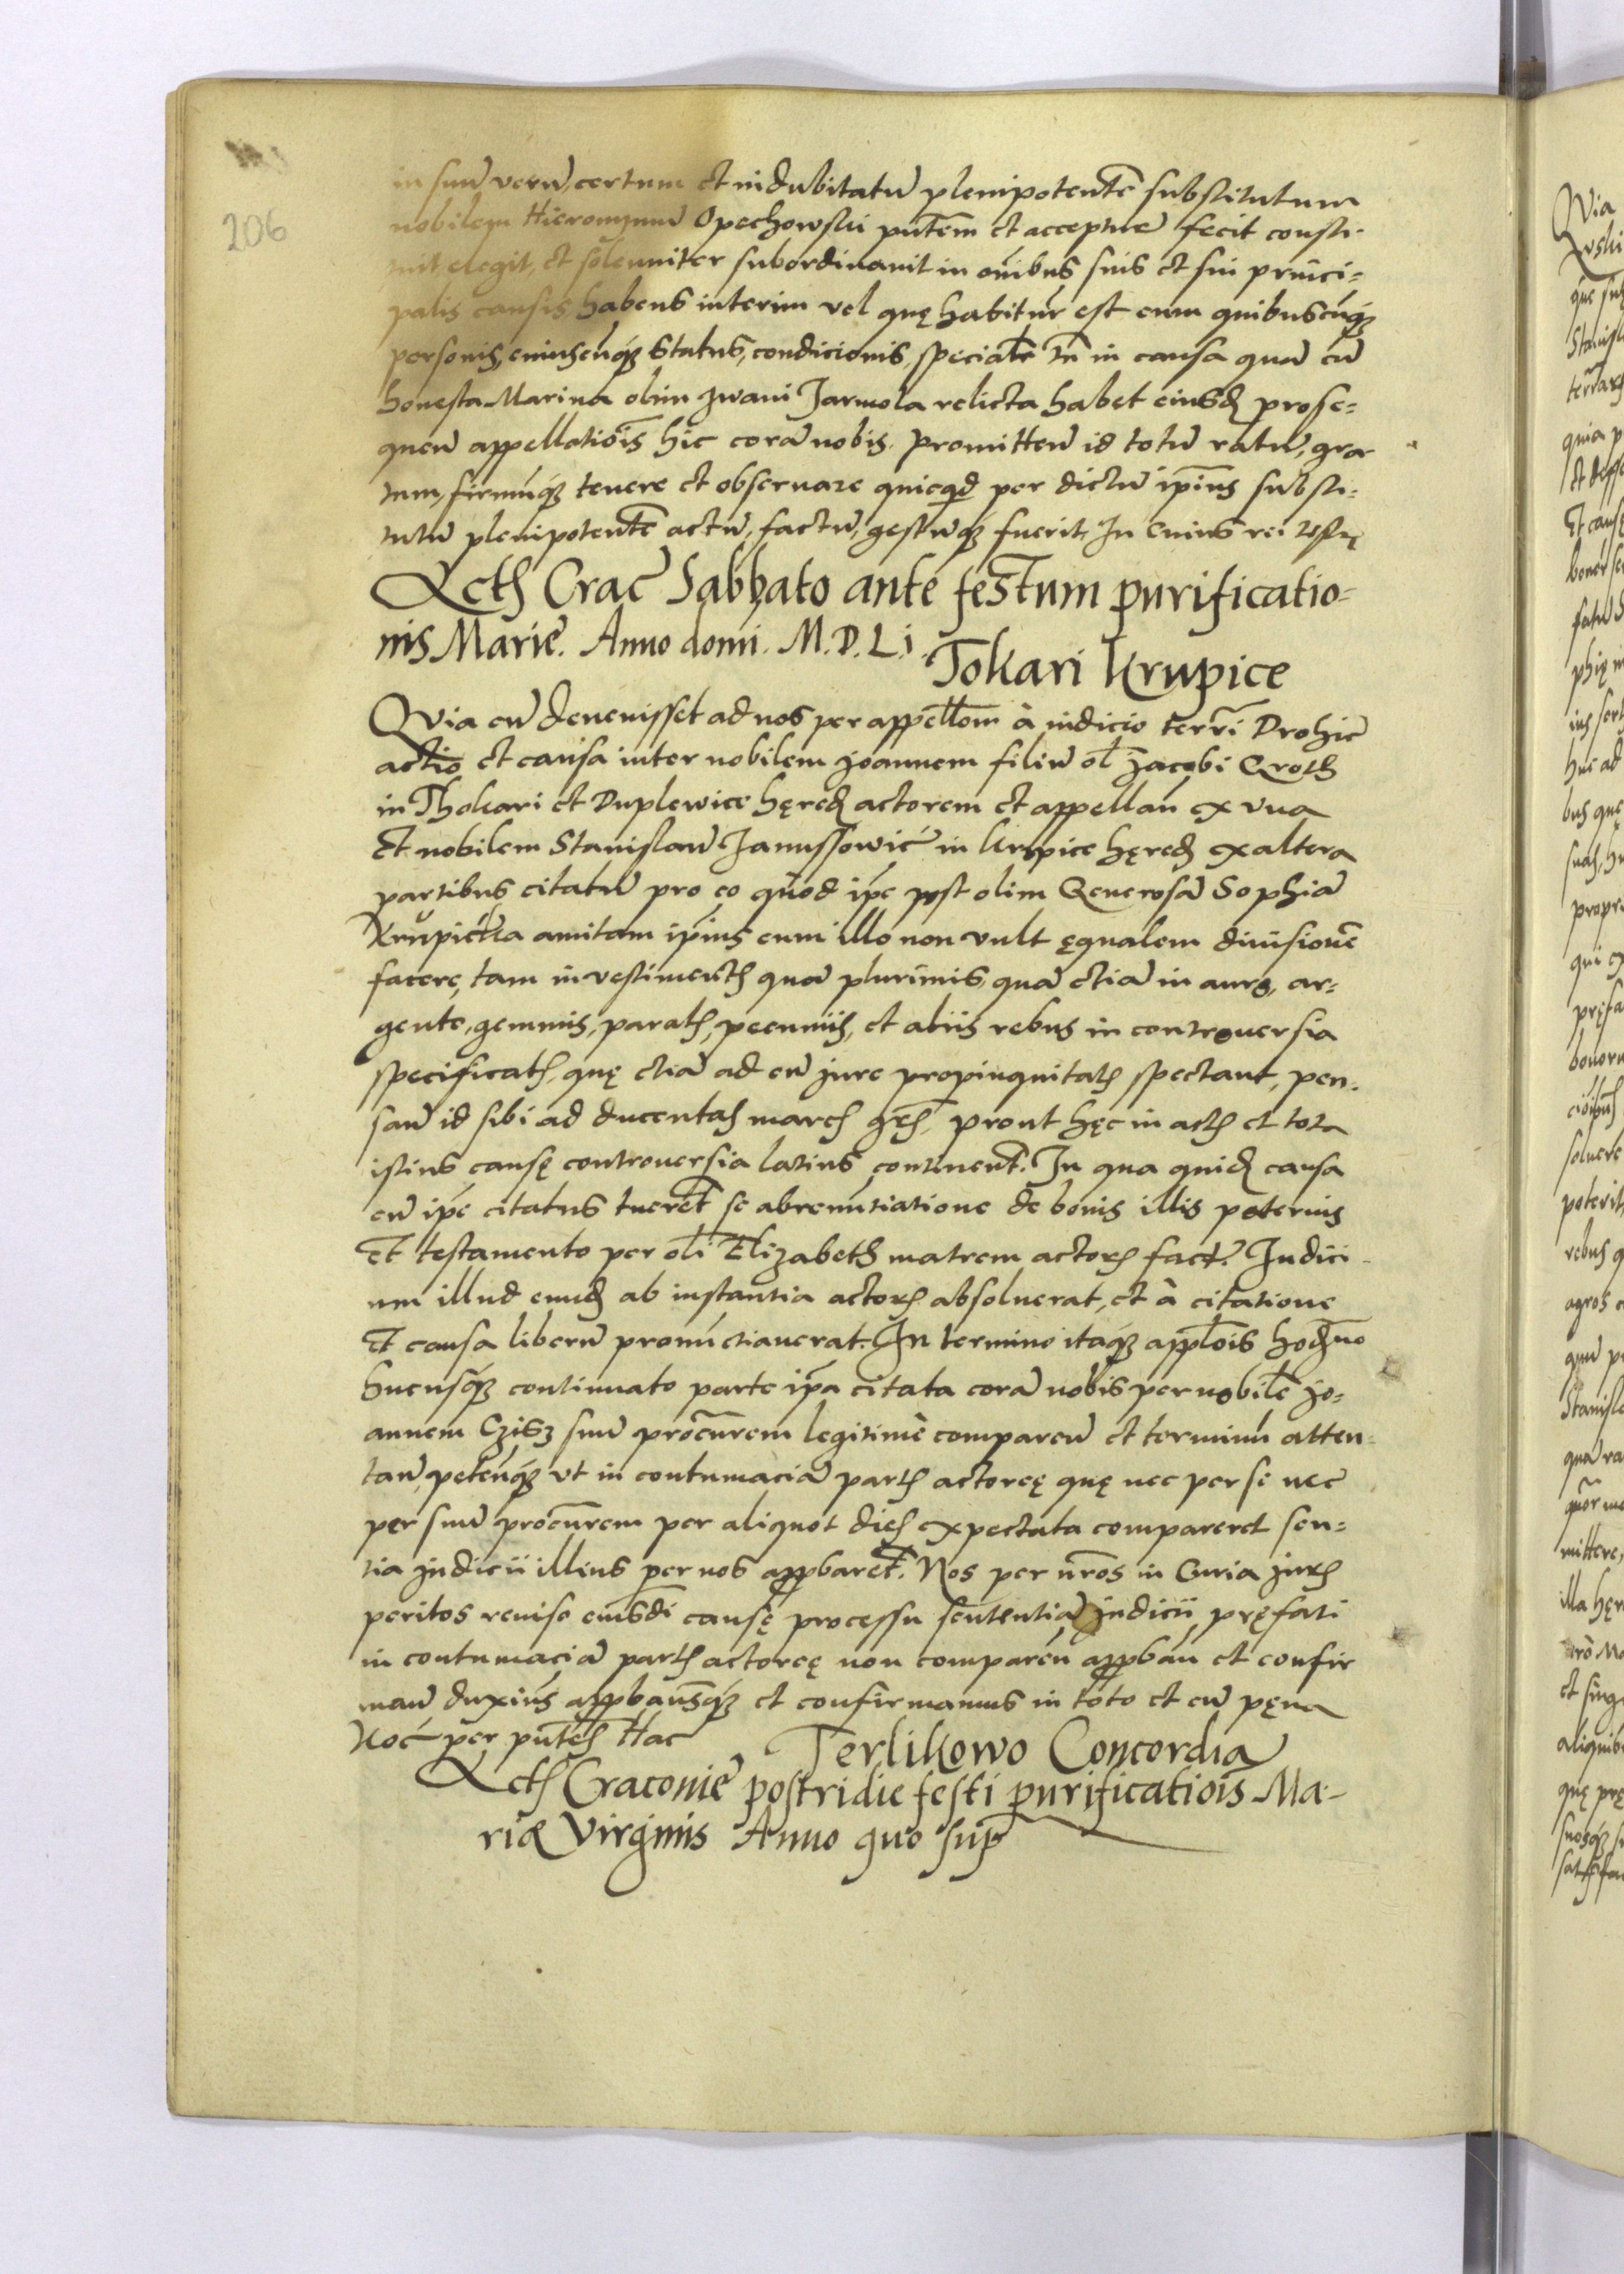 206
in suu͂ veru͂, certum et indubitatu͂ plenipotente͂ substitutum
nobilem Hieronymu͂ Opechowski pn̄tem et acceptan͂ fecit consti-
tuit elegit, et solenniter subordinauit in om̄ibus suis et sui princi-
palis causis habens interim vel quę habitur͂ est cum quibuscu͂qꝫ
personis, cuiuscu͂qꝫ status, condicionis, specialr̄ tn̄ in causa qua͂ cu͂
honesta Marina olim Iwani Jarmola relicta habet eiusdꝫ prose-
quen͂ appellatiōis hic cora͂ nobis. Promitten͂ id totu͂ ratu͂, gra
tum, firmu͂qꝫ tenere et obseruare quicqd per dictu͂ ip̄ius substi-
tutu͂ plenipotente͂ actu͂, factu͂, gestu͂qꝫ fuerit. In Cuius rei
Actꝭ Crac̄ Sabbato ante festum purificatio-
nis Marie͂. Anno domi. M.D.Li.
Tokari Krupice
Qvia cu͂ deuenisset ad nos per appellōm à iudicio terrī Drohic̄
actio et causa inter nobilem Joannem filiu͂ ol̄ Jacobi Groth
in Thokari et Duplewice hęredꝫ actorem et appellan̄ ex vna
Et nobilem Stanislau͂ Janussowić in Krupice hęredꝫ ex altera
partibus citatu͂ pro eo quod ip̄e post olim Generosa͂ Sophia͂
Krupicka amitam ip̄ius cum illo non vult ęqualem diuisione͂
facere, tam in vestimentꝭ qua͂ plurimis, qua͂ etia͂ in auro, ar-
gento, gemmis, paratꝭ, pecuniis, et aliis rebus in controuersia
specificatꝭ, quę etia͂ ad eu͂ iure propinquitatꝭ spectant, pen-
san͂ id sibi ad ducentas marcꝭ gr̄ꝭ, prout hęc in actꝭ et tota
istius causę controuersia latius continent͂. In qua quidꝫ causa
cu͂ ip̄e citatus tueret͂ se abrenu͂tiatione de bonis illis paternis
Et testamento per oli͂ Elizabeth matrem actorꝭ fact͂. Iudici-
um illud eundꝫ ab instantia actorꝭ absoluerat, et à citatione
Et causa liberu͂ pronu͂ctiauerat. In termino itaqꝫ appl̄ois hodꝫno
hucusqꝫ continuato parte ip̄a citata cora͂ nobis per nobile͂ Jo-
annem Czisz suu͂ procūrem legitimè comparen͂ et terminu͂ atten-
tan͂, peten͂qꝫ vt in contumacia͂ partꝭ actoreę quę nec per se nec
per suu͂ procūrem per aliquot dies expectata compareret sen-
tia iudicii illius per nos appbaret͂. Nos per nr̄os in Curia iurꝭ
peritos reuiso eiusdi͂ causę processu sententia͂ iudicii pręfati
in contumacia͂ partꝭ actoreę non comparen͂ appban͂ et confir
man͂ duxim͂us appbamusqꝫ et confirmamus in toto et cu͂ pęna
Noć per pn̄tesꝭ Hac
Terlikowo Concordia
Actꝭ Craconie͂ postridie festi purificatiōis Ma-
riæ Virginis Anno quo sup͂